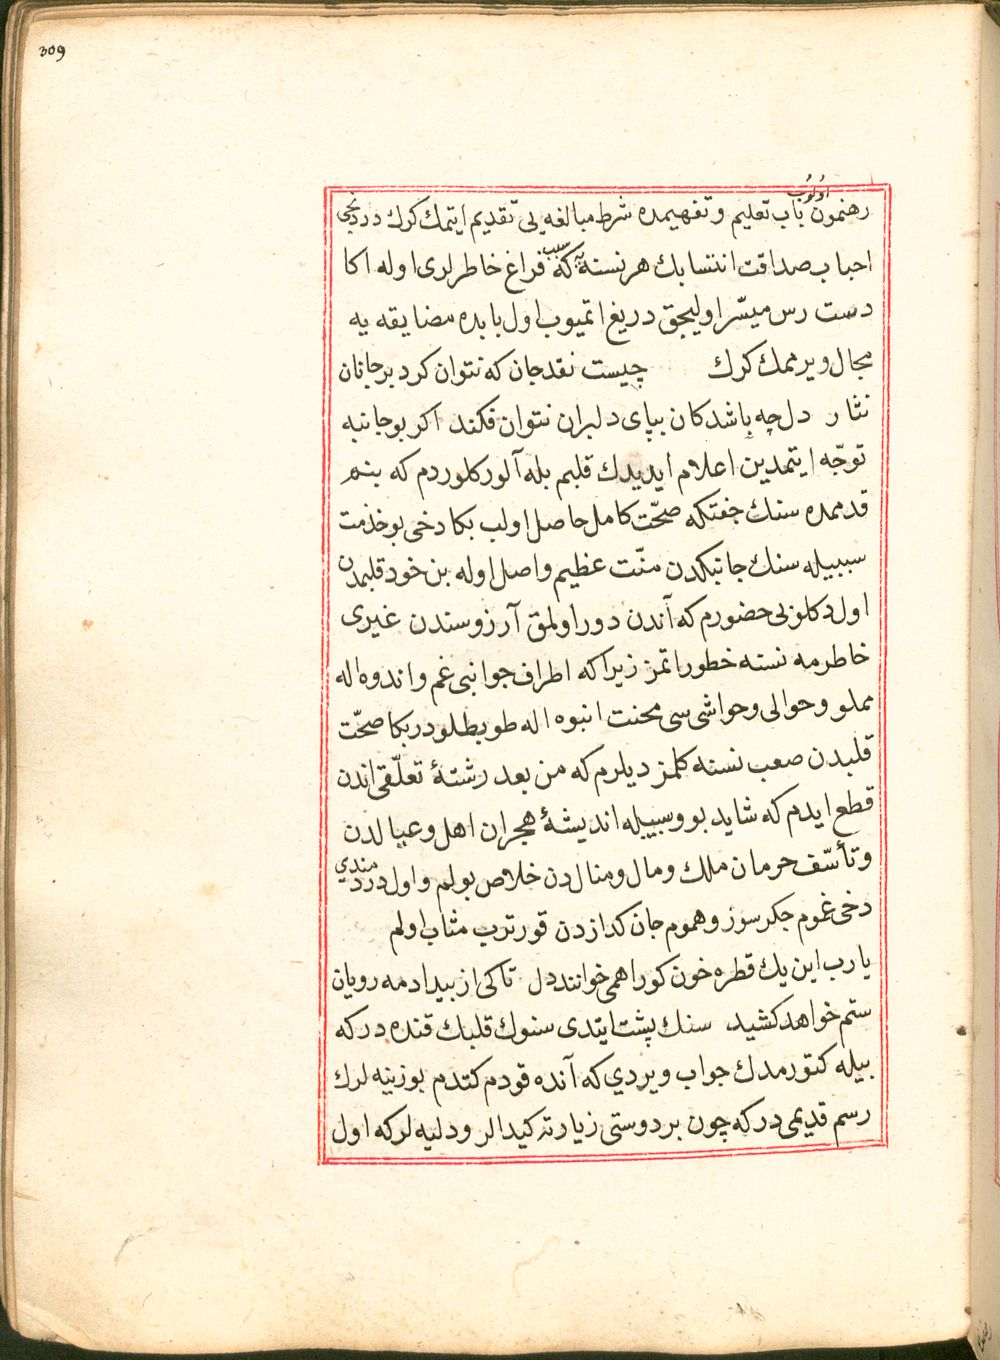 309
اولوب
رهنمون باب تعليم و تفهيمده شرط مبالغه يى تقديم ايتمك كرك در دخى
احباب صداقت انتسابك هر نسنه يه كه سبب فراغ خاطرلرى اوله اكا
دست رس ميسّر اوليجق دريغ اتميوب اول بابده مضايقه يه
مجال ويرممك كرك چيست نقد جان كه نتوان كرد بر جانان
نثار دل چه باشد كان بپاى دلبران نتوان فكند اكر بو جانبه
توجّه ايتمدين اعلام ايديدك قلبم بله آلور كلوردم كه بنم
قدممده سنك جفتكه صحّت كامل حاصل اولب بكا دخى بو خذمت
سببيله سنك جانبكدن منّت عظيم واصل اوله بن خود قلبمدن
اول دكلو بى حضورم كه آندن دور اولمق آرزوسندن غيرى
خاطرمه نسنه خطور اتمز زيرا كه اطراف جوانبى غم و اندوه اله
مملو و حوالى و حواشى سى محنت انبوه اله طوبطلودر بكا صحّت
قلبدن صعب نسنه كلمز ديلرم كه من بعد رشتهٔ تعلّقى اندن
قطع ايدم كه شايد بو وسيله انديشهٔ هجران اهل و عيالدن
و تأسّف حرمان ملك و مال و منالدن خلاص بولم و اول دردمندى
دخى غموم جكرسوز و هموم جان كدازدن قورترب مثاب اولم
يا رب اين يك قطره خون كو را همى خوانند دل تا كى از بيداد مه رويان
ستم خواهد كشيد سنك پشت ايتدى سنوك قلبك قنده در كه
بيله كتورمدك جواب ويردي كه آنده قودم كتدم بوزينه لرك
رسم قديمى در كه چون بر دوستى زيارته كيدالر ودليه لر كه اول